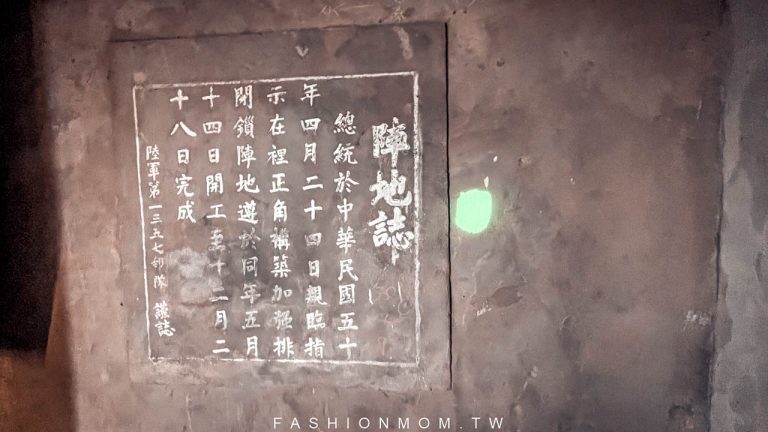 陣地誌
總統於中華民國五十
年四月二十四日親臨指
示在裡正角構築加强排
閉鎖陣地遵於同年五月
十四日開工至十二月二
十八日完成
陸軍第一三五七部隊 謹誌
FASHIONMOM.TW